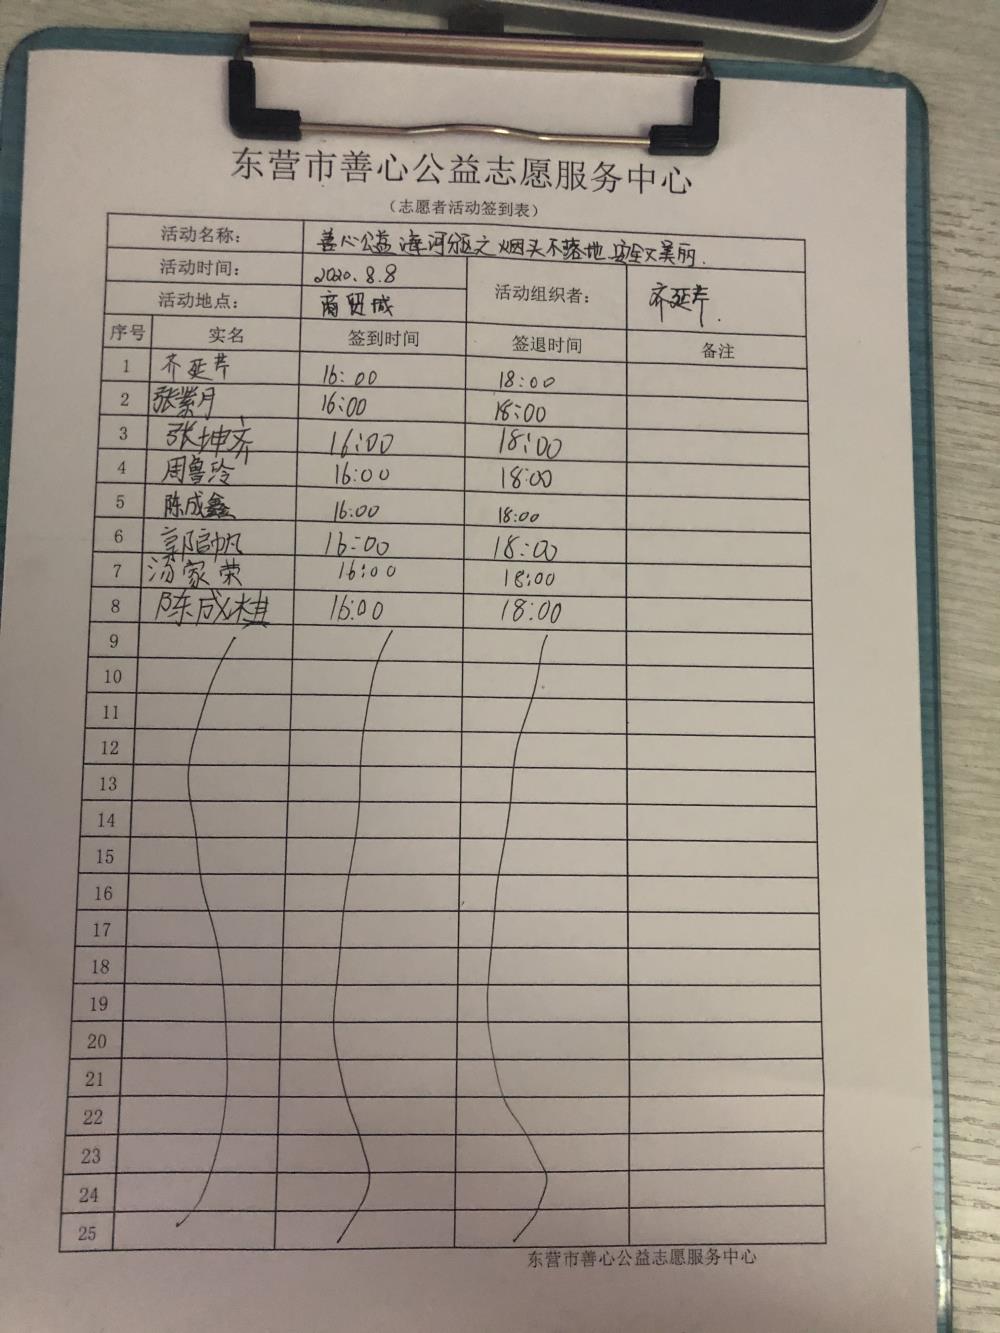 东营市善心公益志愿服务中心
（志愿者活动签到表）
活动名称： 善心公益海河分区之烟头不落地 安全又美丽.
活动时间： 2020.8.8
活动地点： 商贸城
活动组织者： 齐延芹.
序号 实名 签到时间 签退时间 备注
1 齐延芹 16:00 18:00
2 张紫月 16:00 18:00
3 张坤齐 16:00 18:00
4 周鲁玲 16:00 18:00
5 陈成鑫 16:00 18:00
6 郭启帆 16:00 18:00
7 汤家荣 16:00 18:00
8 陈成棋 16:00 18:00
9
10
11
12
13
14
15
16
17
18
19
20
21
22
23
24
25
东营市善心公益志愿服务中心